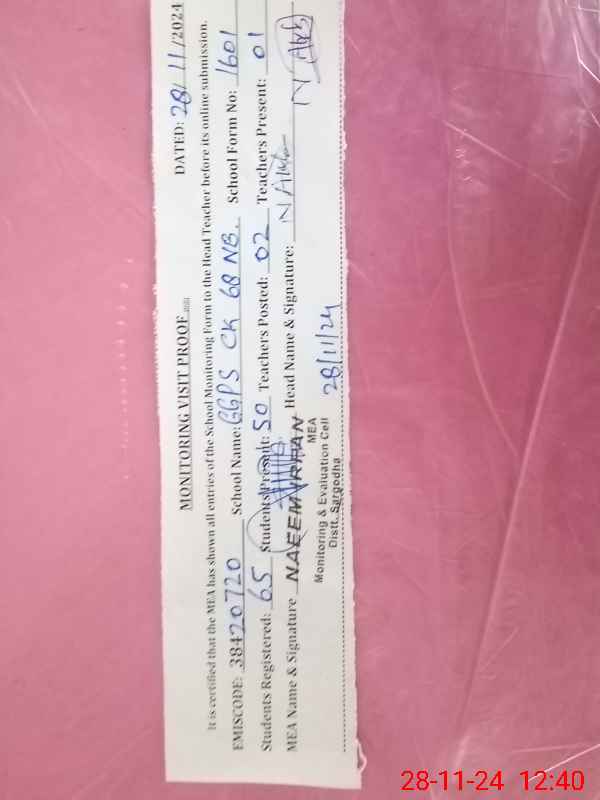 MONITORING VISIT PROOF
DATED: 28/11/2024
It is certified that the MEA has shown all entries of the School Monitoring Form to the Head Teacher before its online submission.
EMISCODE: 38420720 School Name: GGPS CK 68 NB. School Form No: 1601
Students Registered: 65 Students Present: 50 Teachers Posted: 02 Teachers Present: 01
MEA Name & Signature NAEEM IRFAN Head Name & Signature:
MEA
Monitoring & Evaluation Cell
Distt. Sargodha
28/11/24
28-11-24 12:40